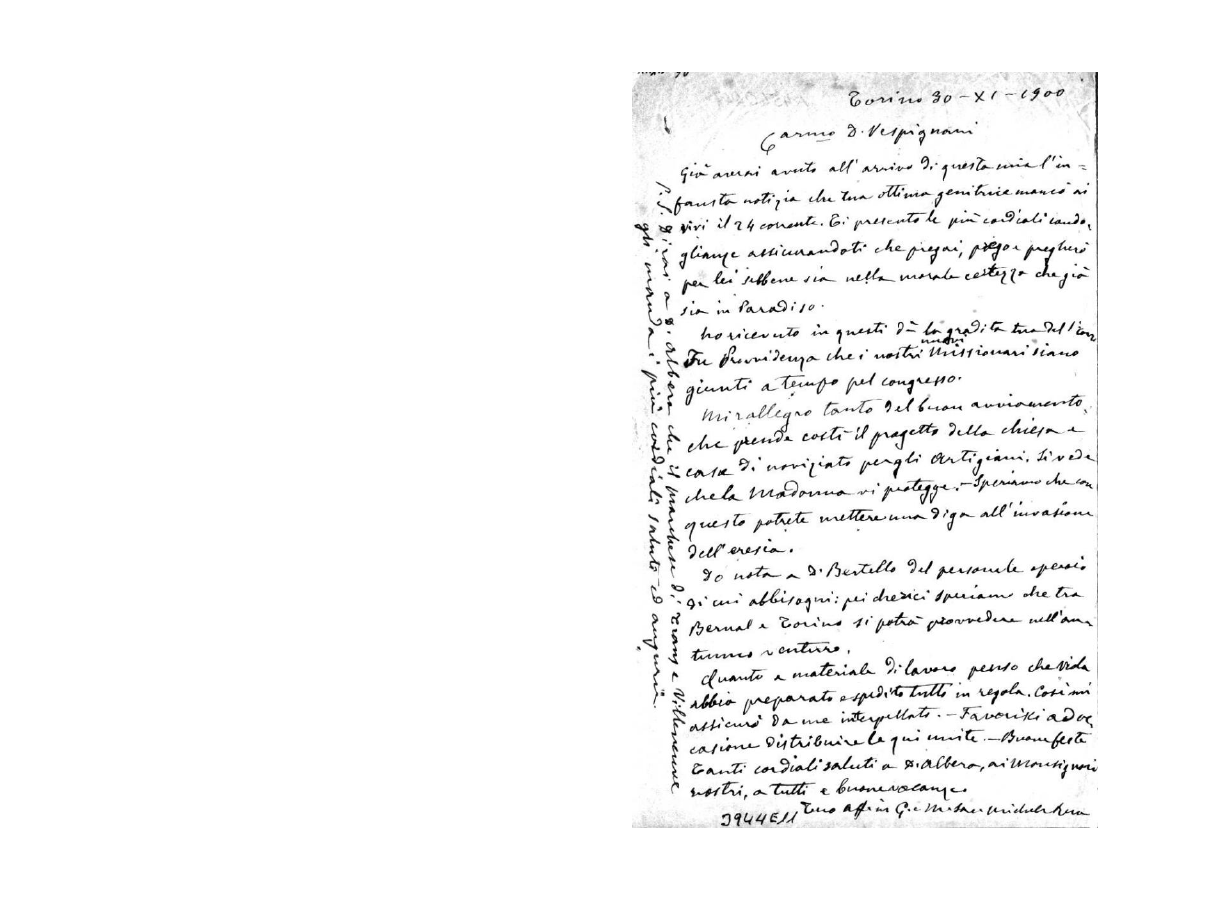 Torino 30-XI-1900
Carmo D. Vespignani
Già avrai avuto all'arrivo di questa mia l'in=
fausta notizia che tua ottima genitrice mancò ai
vivi il 24 corrente. Ti presento le più cordiali condo,
glianze assicurandoti che pregai, prego e pregherò
per lei sebbene sia nella morale certezza che già
sia in Paradiso.
Ho ricevuto in questi dì la gradita tua del 1 corr
Fu Provvidenza che i nostri nuovi Missionari siano
giunti a tempo pel congresso.
Mi rallegro tanto del buon avviamento,
che prende costì il progetto della chiesa e
casa di noviziato per gli Artigiani. Si vede
che la Madonna vi protegge. - Speriamo che con
questo potrete mettere una diga all'invasione
dell'eresia.
Do nota a D. Bertello del personale operaio
di cui abbisogni: pei cherici speriamo che tra
Bernal e Torino si potrà provvedere nell'au=
tunno venturo.
Quanto a materiale di lavoro penso che Viola
abbia preparato e spedito tutto in regola. Così mi
assicurò da me interpellato. - Favorisci ad oc,
casione distribuire le qui unite. - Buone feste
Tanti cordiali saluti a D. Albera, ai Monsignori
nostri, a tutti e buone vacanze
Tuo aff.mo in G. e M. Sac. Michele Rua
3944E11
P.S. Dirai a D. Albera che il marchese di Trans e Villeneuve
gli manda i più cordiali saluti ed auguri.